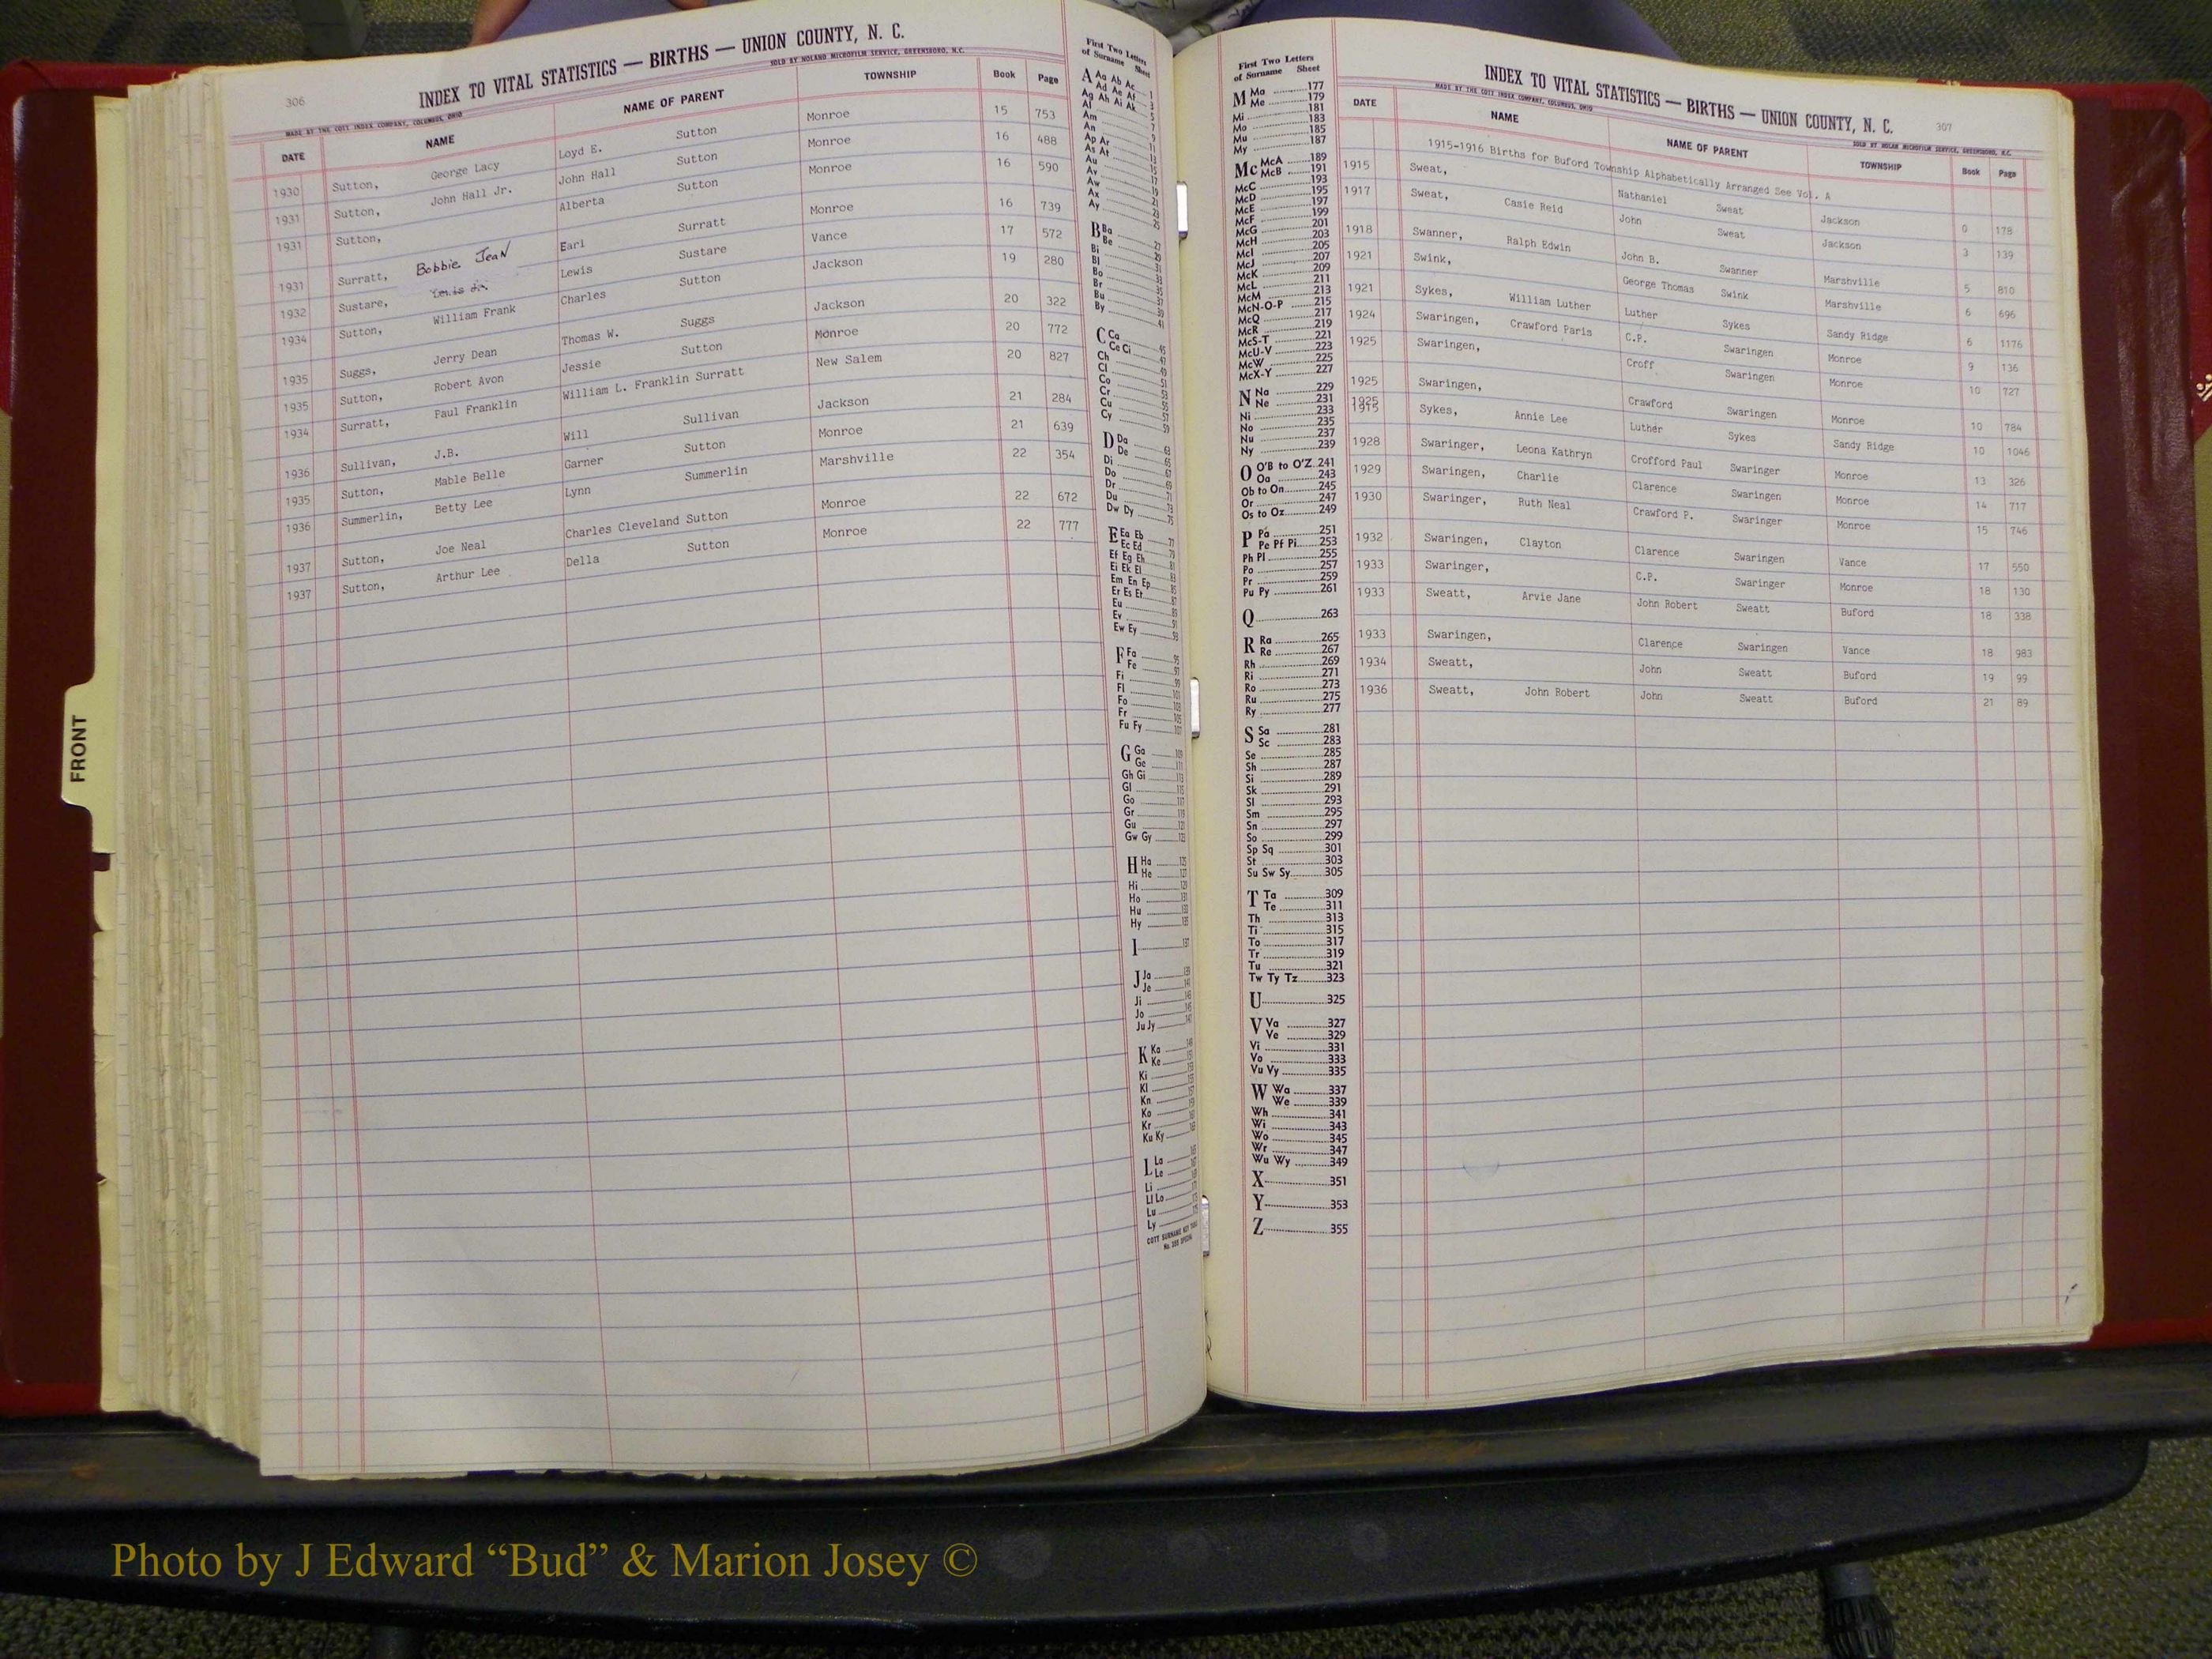 306
INDEX TO VITAL STATISTICS — BIRTHS — UNION COUNTY, N. C.
MADE BY THE COTT INDEX COMPANY, COLUMBUS, OHIO SOLD BY NOLAND MICROFILM SERVICE, GREENSBORO, N.C.
DATE NAME NAME OF PARENT TOWNSHIP Book Page
1930 Sutton, George Lacy Loyd E. Sutton Monroe 15 753
1931 Sutton, John Hall Jr. John Hall Sutton Monroe 16 488
1931 Sutton, Alberta Sutton Monroe 16 590
1931 Surratt, Bobbie Jean Earl Surratt Monroe 16 739
1932 Sustare, Lewis Sustare Vance 17 572
1934 Sutton, William Frank Charles Sutton Jackson 19 280
1935 Suggs, Jerry Dean Thomas W. Suggs Jackson 20 322
1935 Sutton, Robert Avon Jessie Sutton Monroe 20 772
1934 Surratt, Paul Franklin William L. Franklin Surratt New Salem 20 827
1936 Sullivan, J.B. Will Sullivan Jackson 21 284
1935 Sutton, Mable Belle Garner Sutton Monroe 21 639
1936 Summerlin, Betty Lee Lynn Summerlin Marshville 22 354
1937 Sutton, Joe Neal Charles Cleveland Sutton Monroe 22 672
1937 Sutton, Arthur Lee Della Sutton Monroe 22 777
FRONT
First Two Letters
of Surname Sheet
A Aa Ab Ac 1
Ad Ae Af 3
Ag Ah Ai Ak 5
Al 7
Am 9
An 11
Ap Ar 13
As At 15
Au 17
Av 19
Aw 21
Ax 23
Ay 25
B Ba 27
Be 29
Bi 31
Bl 33
Bo 35
Br 37
Bu 39
By 41
C Ca 45
Ce Ci 47
Ch 49
Cl 51
Co 53
Cr 55
Cu 57
Cy 59
D Da 63
De 65
Di 67
Do 69
Dr 71
Du 73
Dw Dy 75
E Ea Eb 77
Ec Ed 79
Ef Eg Eh 81
Ei Ek El 83
Em En Ep 85
Er Es Et 87
Eu 89
Ev 91
Ew Ey 93
F Fa 95
Fe 97
Fi 99
Fl 101
Fo 103
Fr 105
Fu Fy 107
G Ga 109
Ge 111
Gh Gi 113
Gl 115
Go 117
Gr 119
Gu 121
Gw Gy 123
H Ha 125
He 127
Hi 129
Ho 131
Hu 133
Hy 135
I 137
J Ja
Je
Ji
Jo
Ju Jy
K Ka
Ke
Ki
Kl
Kn
Ko
Kr
Ku Ky
L La
Le
Li
Ll Lo
Lu
Ly
COTT SURNAME KEY TABLE
First Two Letters
of Surname Sheet
M Ma 177
Me 179
Mi 181
Mo 183
Mu 185
My 187
Mc McA 189
McB 191
McC 193
McD 195
McE 197
McF 199
McG 201
McH 203
McI 205
McJ 207
McK 209
McL 211
McM 213
McN-O-P 215
McQ 217
McR 219
McS-T 221
McU-V 223
McW 225
McX-Y 227
N Na 229
Ne 231
Ni 233
No 235
Nu 237
Ny 239
O O'B to O'Z 241
Oa 243
Ob to On 245
Or 247
Os to Oz 249
P Pa 251
Pe Pf Pi 253
Ph Pl 255
Po 257
Pr 259
Pu Py 261
Q 263
R Ra 265
Re 267
Rh 269
Ri 271
Ro 273
Ru 275
Ry 277
S Sa 281
Sc 283
Se 285
Sh 287
Si 289
Sk 291
Sl 293
Sm 295
Sn 297
So 299
Sp Sq 301
St 303
Su Sw Sy 305
T Ta 309
Te 311
Th 313
Ti 315
To 317
Tr 319
Tu 321
Tw Ty Tz 323
U 325
V Va 327
Ve 329
Vi 331
Vo 333
Vu Vy 335
W Wa 337
We 339
Wh 341
Wi 343
Wo 345
Wr 347
Wu Wy 349
X 351
Y 353
Z 355
INDEX TO VITAL STATISTICS — BIRTHS — UNION COUNTY, N. C. 307
MADE BY THE COTT INDEX COMPANY, COLUMBUS, OHIO SOLD BY NOLAN MICROFILM SERVICE, GREENSBORO, N.C.
DATE NAME NAME OF PARENT TOWNSHIP Book Page
1915-1916 Births for Buford Township Alphabetically Arranged See Vol. A
1915 Sweat, Nathaniel Sweat Jackson 0 178
1917 Sweat, Casie Reid John Sweat Jackson 3 139
1918 Swanner, Ralph Edwin John B. Swanner Marshville 5 810
1921 Swink, George Thomas Swink Marshville 6 696
1921 Sykes, William Luther Luther Sykes Sandy Ridge 6 1176
1924 Swaringen, Crawford Paris C.P. Swaringen Monroe 9 136
1925 Swaringen, Croff Swaringen Monroe 10 727
1925 Swaringen, Crawford Swaringen Monroe 10 784
1925 1915 Sykes, Annie Lee Luther Sykes Sandy Ridge 10 1046
1928 Swaringer, Leona Kathryn Crofford Paul Swaringer Monroe 13 326
1929 Swaringen, Charlie Clarence Swaringen Monroe 14 717
1930 Swaringer, Ruth Neal Crawford P. Swaringer Monroe 15 746
1932 Swaringen, Clayton Clarence Swaringen Vance 17 550
1933 Swaringer, C.P. Swaringer Monroe 18 130
1933 Sweatt, Arvie Jane John Robert Sweatt Buford 18 338
1933 Swaringen, Clarence Swaringen Vance 18 983
1934 Sweatt, John Sweatt Buford 19 99
1936 Sweatt, John Robert John Sweatt Buford 21 89
Photo by J Edward “Bud” & Marion Josey ©